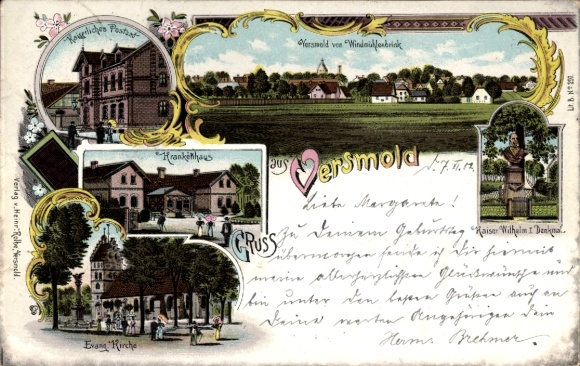 Kaiserliches Postamt
Versmold von Windmühlenbrink
Lt. B. No 251
Krankenhaus
Gruss
aus
Versmold
V. 7. VI. 02.
Kaiser Wilhelm I Denkmal
Evang. Kirche
Liebe Margarete!
Zu Deinem Geburtstag
übermorgen sende ich Dir hiermit
meine allerherzlichsten Glückwünsche und
bin unter den besten Grüßen auch an
Deine werten Angehörigen Dein
Herm. Brehmer.
Verlag v. Heinr. Versmold.